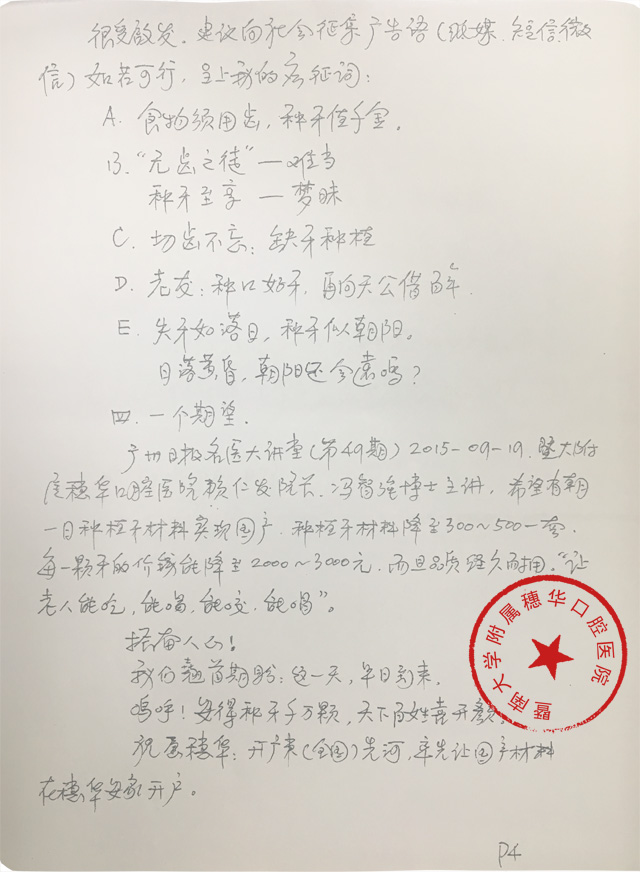 很受启发。建议向社会征集广告语（纸媒、短信、微
信）如若可行，呈上我的应征词：
A. 食物须用齿，种牙值千金。
B. “无齿之徒”—难当
种牙至享 — 梦昧
C. 切齿不忘：缺牙种植
D. 老友：种口好牙，再向天公借百年.
E. 失牙如落日，种牙似朝阳。
日落黄昏，朝阳还会远吗？
四. 一个期望.
广州日报名医大讲堂（第49期）2015-09-19.暨大附
属穗华口腔医院赖仁发院长、冯智强博士主讲，希望有朝
一日种植牙材料实现国产.种植牙材料降至300～500一套.
每一颗牙的价钱能降至2000～3000元.而且品质经久耐用。“让
老人能吃，能喝，能咬，能唱”。
振奋人心！
我们翘首期盼：这一天，早日到来.
呜呼！安得种牙千万颗，天下百姓喜开颜。
祝愿穗华：开广东（全国）先河，率先让国产材料
在穗华安家开户。
P4
暨南大学附属穗华口腔医院